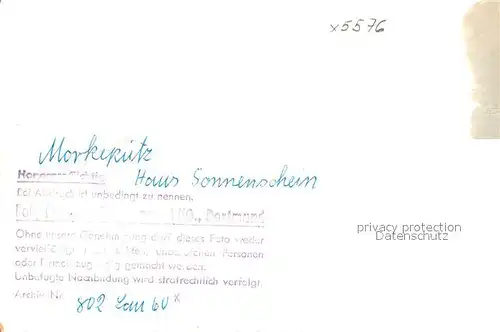 x5576
Morkepütz
Haus Sonnenschein
Honorarpflichtig
Bei Abdruck ist unbedingt zu nennen.
KG., Dortmund
Ohne unsere Genehmigung darf dieses Foto weder
vervielfältigt unbefugten Personen
oder Firmen zugänglich gemacht werden.
Unbefugte Nachbildung wird strafrechtlich verfolgt.
Archiv Nr. 802 Lau 60 x
privacy protection
Datenschutz